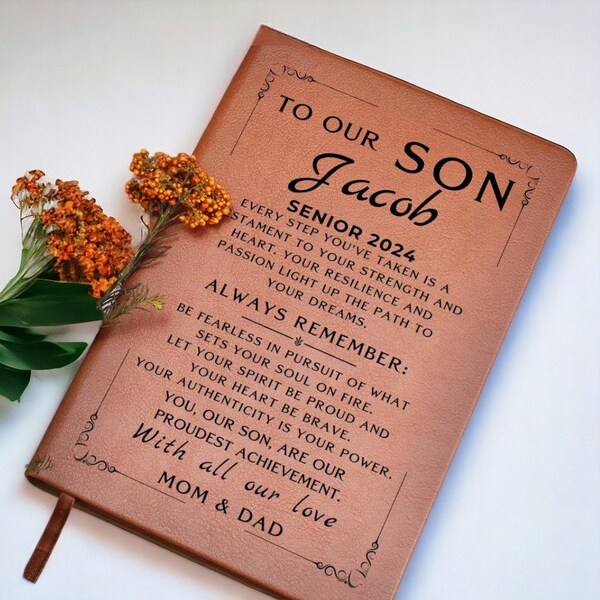 TO OUR SON
Jacob
SENIOR 2024
EVERY STEP YOU'VE TAKEN IS A
STAMENT TO YOUR STRENGTH AND
HEART. YOUR RESILIENCE AND
PASSION LIGHT UP THE PATH TO
YOUR DREAMS.
ALWAYS REMEMBER:
BE FEARLESS IN PURSUIT OF WHAT
SETS YOUR SOUL ON FIRE.
LET YOUR SPIRIT BE PROUD AND
YOUR HEART BE BRAVE.
YOUR AUTHENTICITY IS YOUR POWER.
YOU, OUR SON, ARE OUR
PROUDEST ACHIEVEMENT.
With all our love
MOM & DAD